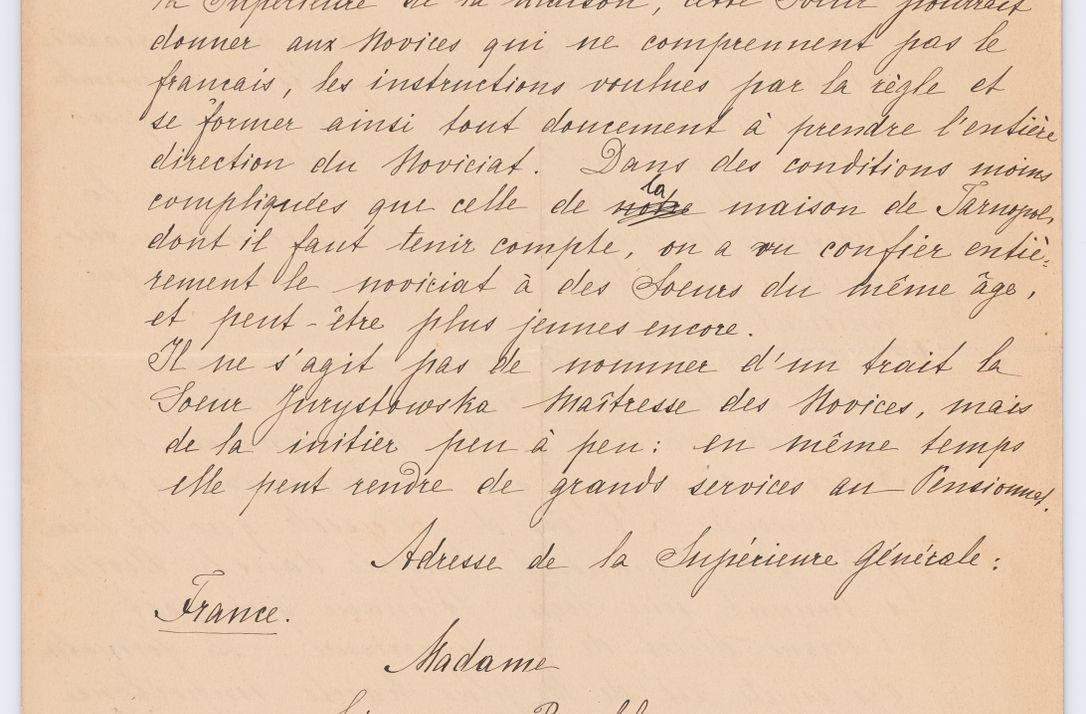 la Supérieure de la maison, cette Soeur pourrait
donner aux Novices qui ne comprennent pas le
francais, les instructions voulues par la règle et
se former ainsi tout doucement à prendre l'entière
direction du Noviciat. Dans des conditions moins
compliquées que celle de notre la maison de Tarnopol,
dont il faut tenir compte, on a vu confier entiè-
rement le noviciat à des Soeurs du même âge,
et peut-être plus jeunes encore.
Il ne s'agit pas de nommer d'un trait la
Soeur Jurystowska Maîtresse des Novices, mais
de la initier peu à peu: en même temps
elle peut rendre de grands services au Pensionnat.
Adresse de la Supérieure Générale:
France.
Madame